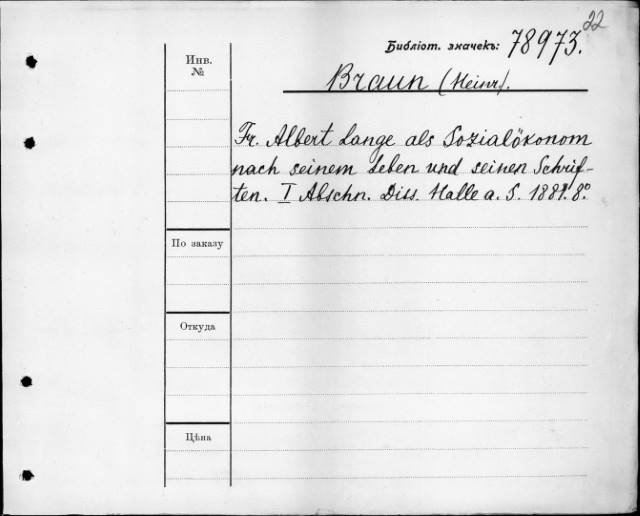 22
Библіот. значекъ: 78973.
Инв.
№
Braun (Heinr).
Fr. Albert Lange als Sozialökonom
nach seinem Leben und seinen Schrif-
ten. I Abschn. Diss. Halle a. S. 1881. 8°.
По заказу
Откуда
Цѣна